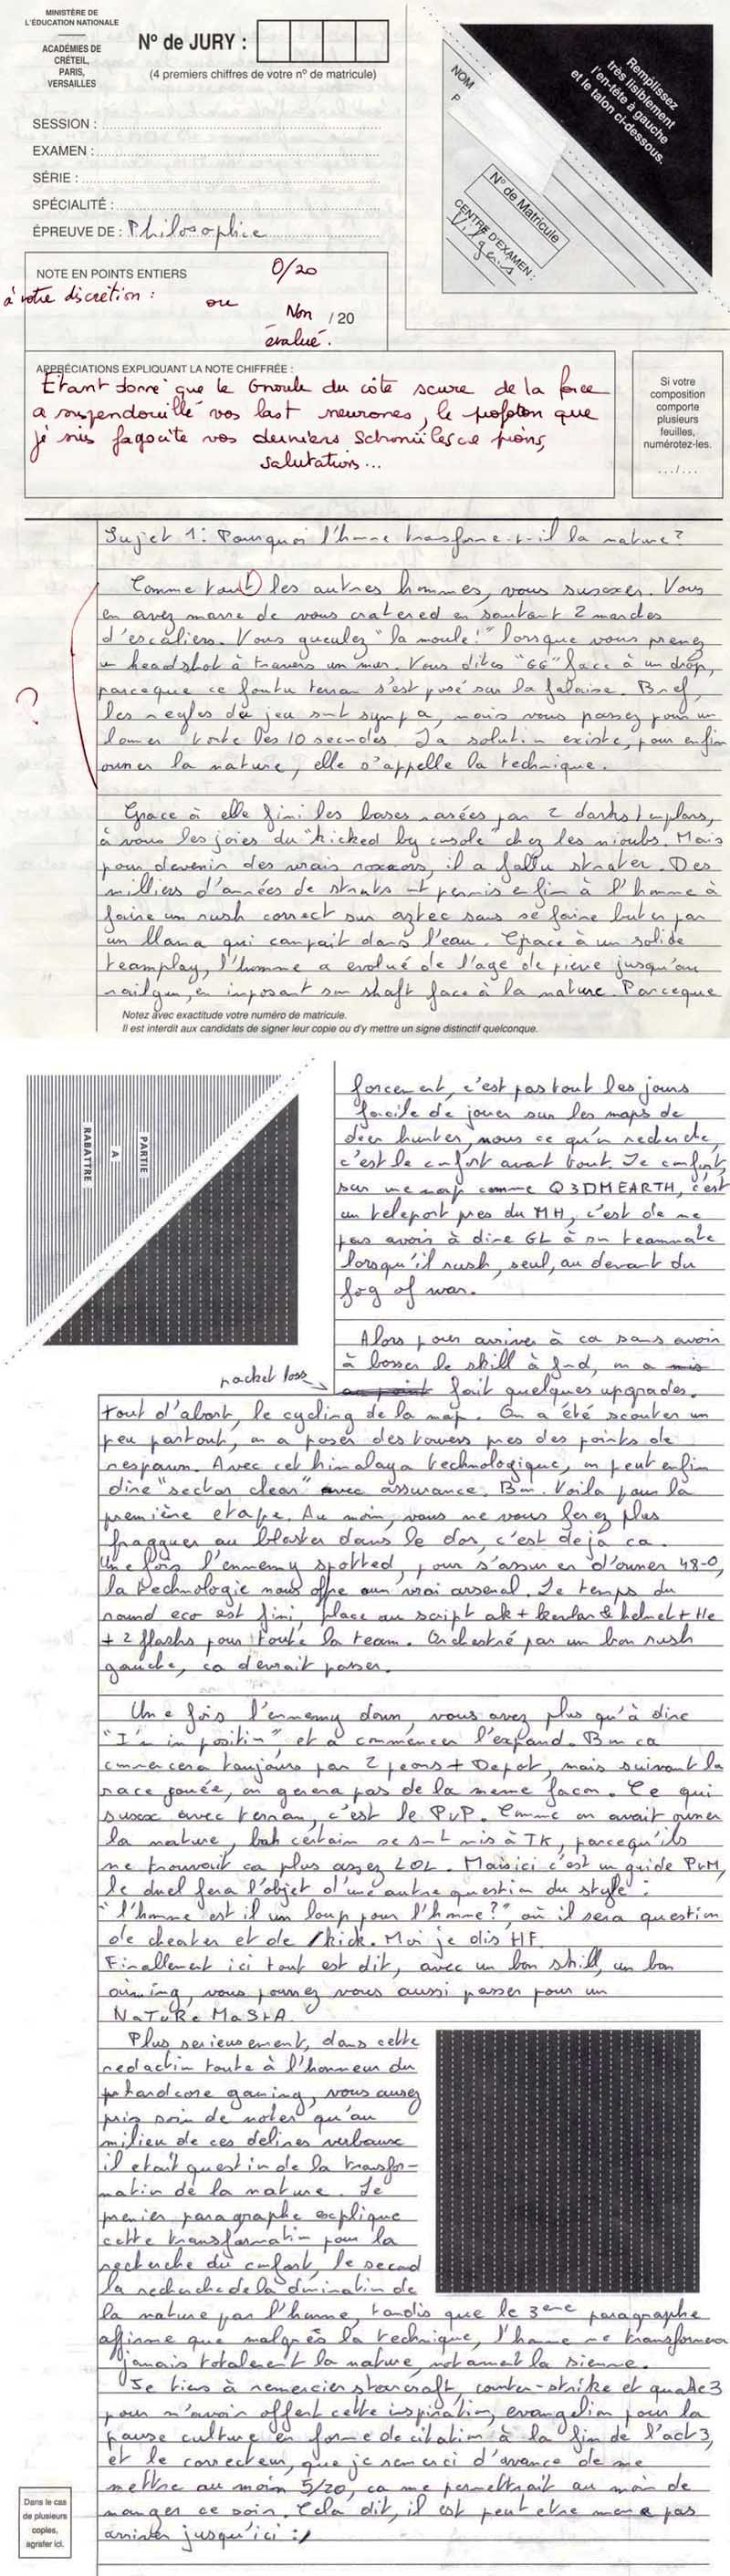 MINISTÈRE DE
L'ÉDUCATION NATIONALE
ACADÉMIES DE
CRÉTEIL,
PARIS,
VERSAILLES
N° de JURY :
(4 premiers chiffres de votre n° de matricule)
SESSION :
EXAMEN :
SÉRIE :
SPÉCIALITÉ :
ÉPREUVE DE : Philosophie
NOM
P
N° de Matricule
CENTRE D'EXAMEN :
Remplissez
très lisiblement
l'en-tête à gauche
et le talon ci-dessous.
NOTE EN POINTS ENTIERS
0/20
à votre discrétion :
ou
Non / 20
évalué.
APPRÉCIATIONS EXPLIQUANT LA NOTE CHIFFRÉE :
Étant donné que le Gnoule du côté scure de la force
a suspendouillé vos last neurones, le que
je suis fagocite vos derniers pions,
salutations...
Si votre
composition
comporte
plusieurs
feuilles,
numérotez-les.
.../...
Sujet 1: Pourquoi l'homme transforme-t-il la nature?
Comme tout les autres hommes, vous suxoxez. Vous
en avez marre de vous cratered en sautant 2 marches
d'escaliers. Vous gueulez "la moule!" lorsque vous prenez
un headshot à travers un mur. Vous dites "GG" face à un drop,
parceque ce foutu terran s'est posé sur la falaise. Bref,
les regles du jeu sont sympa, mais vous passez pour un
lamer toute les 10 secondes. La solution existe, pour enfin
owner la nature, elle s'appelle la technique.
?
Grace à elle fini les bases rasées par 2 darks templars,
à vous les joies du "kicked by console" chez les nioubs. Mais
pour devenir des vrais roxxors, il a fallu strater. Des
milliers d'années de strats ont permis enfin à l'homme à
faire un rush correct sur aztec sans se faire buter par
un llama qui campait dans l'eau. Grace à un solide
teamplay, l'homme a evolué de l'age de pierre jusqu'au
railgun, en imposant son shaft face à la nature. Parceque
Notez avec exactitude votre numéro de matricule.
Il est interdit aux candidats de signer leur copie ou d'y mettre un signe distinctif quelconque.
PARTIE
A
RABATTRE
forcement, c'est pas tout les jours
facile de jouer sur les maps de
deer hunter, nous ce qu'on recherche,
c'est le confort avant tout. Le confort,
sur une map comme Q3DMEARTH, c'est
un teleport pres du MH, c'est de ne
pas avoir à dire GL à son teammate
lorsqu'il rush, seul, au devant du
fog of war.
Alors pour arriver à ca sans avoir
à bosser le skill à fond, on a mis
packet loss
au point fait quelques upgrades.
tout d'abort, le cycling de la map. On a été scouter un
peu partout, on a poser des towers pres des points de
respawn. Avec cet himalaya technologique, on peut enfin
dire "sector clear" avec assurance. Bon. Voila pour la
première etape. Au moin, vous ne vous ferez plus
fragguer au blaster dans le dos, c'est deja ca.
Une fois l'ennemy spotted, pour s'assurer d'owner 48-0,
la technologie nous offre aun vrai arsenal. Le temps du
round eco est fini, place au script ak + kevlar & helmet + He
+ 2 flashs pour toute la team. Orchestré par un bon rush
gauche, ca devrait passer.
Une fois l'ennemy down, vous avez plus qu'à dire
"I'm in position", et à commencer l'expand. Bon ca
commencera toujours par 2 peons + Depot, mais suivant la
race jouée, on gerera pas de la meme facon. Ce qui
suxox avec terran, c'est le PvP. Comme on avait owner
la nature, bah certain se sont mis à TK, parcequ'ils
ne trouvait ca plus assez LOL. Mais ici c'est un guide PvM,
le duel fera l'objet d'une autre question du style :
"l'homme est il un loup pour l'homme?", où il sera question
de cheater et de /kick. Moi je dis HF.
Finallement ici tout est dit, avec un bon skill, un bon
aiming, vous pourrez vous aussi passer pour un
NaTuRe MaStA.
Plus serieusement, dans cette
redaction toute à l'honneur du
hardcore gaming, vous aurez
pris soin de noter qu'au
milieu de ces delires verbaux
il etait question de la transfor-
mation de la nature. Le
premier paragraphe explique
cette transformation pour la
recherche du confort, le second
la recherche de la domination de
la nature par l'homme, tandis que le 3eme paragraphe
affirme que malgrès la technique, l'homme ne transformera
jamais totalement la nature, notament la sienne.
Je tiens à remercier starcraft, counter-strike et quake 3
pour m'avoir offert cette inspiration, evangelion pour la
pause culture en forme de citation à la fin de l'act 3,
et le correcteur, que je remerci d'avance de me
mettre au moin 5/20, ca me permettrait au moin de
manger ce soir. Cela dit, il est peut etre meme pas
arriver jusqu'ici :/
Dans le cas
de plusieurs
copies,
agrafer ici.